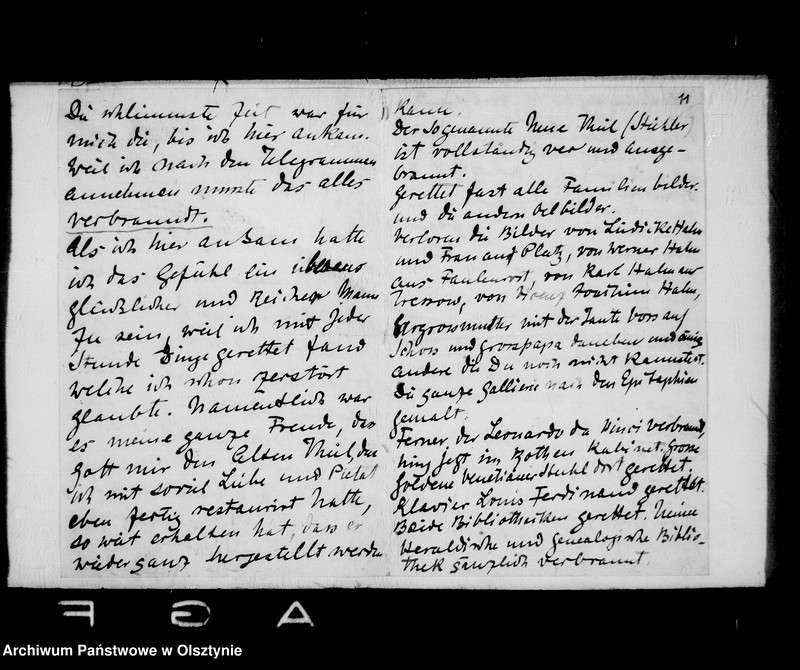 Die schlimmste Zeit war für
mich die, bis ich hier ankam.
Weil ich nach den Telegrammen
annehmen musste das alles
verbrannt.
Als ich hier ankam hatte
ich das Gefühl ein überaus
glücklicher und Reicher Mann
zu sein, weil ich mit jeder
Stunde Dinge gerettet fand
welche ich schon zerstört
glaubte. Namentlich war
es meine ganze Freude, das
Gott mir den Alten Theil, den
ich mit soviel Liebe und Pietät
eben fertig restaurirt hatte,
so weit erhalten hat, dass er
wieder ganz hergestellt werden
11
kann.
Der Sogenannte Neue Theil (Stühler)
ist vollständig ver und ausge-
brannt.
Gerettet fast alle Familien bilder.
und die andern Oelbilder.
Verloren die Bilder von Lüdicke Hahn
und Frau auf Platz, von Werner Hahn
aus , von Karl Hahn aus
, von Joachim Hahn,
Urgrossmutter mit der Tante Voss auf
Schoss und Grosspapa daneben und einige
andere die Du noch nicht kanntest.
Die ganze Gallerie nach den Epitaphien
gemalt.
Ferner, der Leonardo da Vinci verbrannt,
hing jetzt im Rothen Kabinet. Grosse
Goldene Venetianer Stuhl dort gerettet.
Klavier Louis Ferdinand gerettet.
Beide Bibliotheken gerettet. Meine
Heraldische und genealogische Biblio-
thek gänzlich verbrannt.
AGF
Archiwum Państwowe w Olsztynie